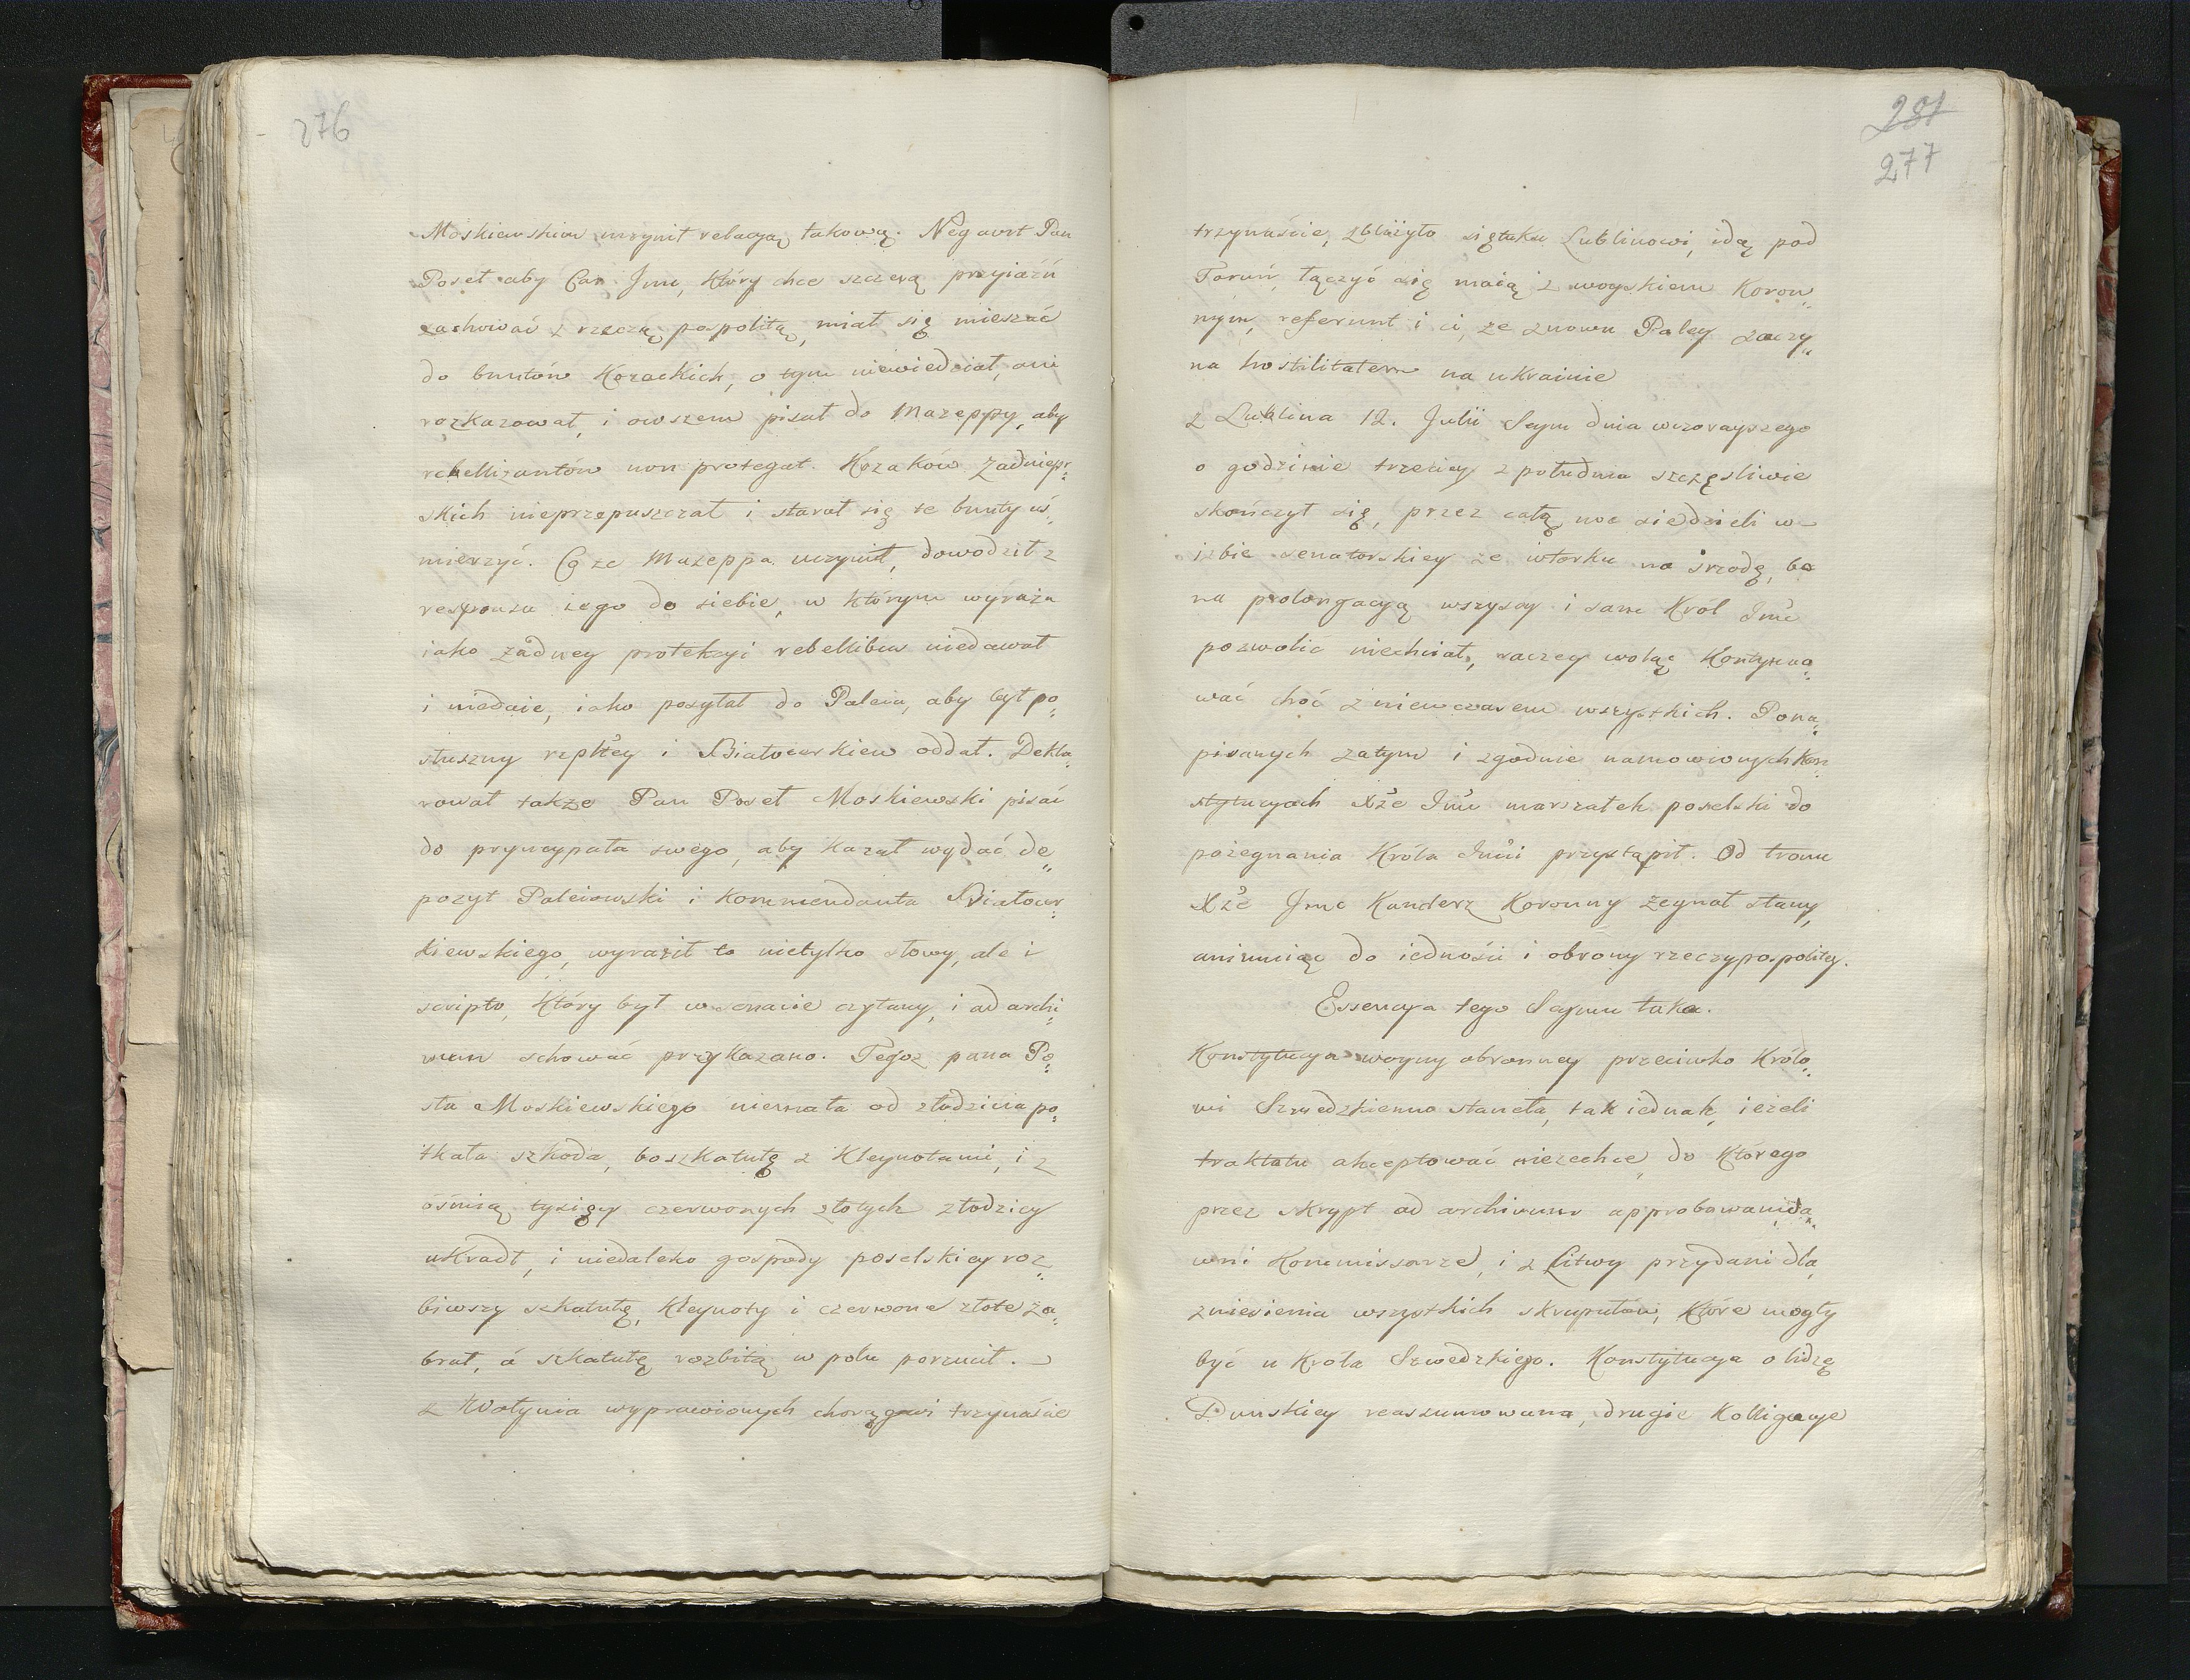 276
Moskiewskim uczynił relacyą takową. Negavit Pan
Poseł aby Car Jmc, który chce szczerą przyiaźń
zachować z rzeczą pospolitą, miał się mieszać
do buntów Kozackich, o tym niewiedział, ani
rozkazował, i owszem pisał do Mazeppy, aby
rebellizantów non protegat. Kozaków Zadniepr„
skich nieprzepuszczał i starał się te bunty uś„
mierzyć. Co że Mazeppa uczynił, dowodził z
responsu iego do siebie, w którym wyraża
iako żadney protekcyi rebellibus niedawał
i niedaie, iako posyłał do Paleia, aby był po„
słuszny rzpltey i Białocerkiew oddał. Dekla„
rował także Pan Poseł Moskiewski pisać
do pryncypała swego, aby kazał wydać de„
pozyt Paleiowski i kommendanta Białocer„
kiewskiego, wyraził to nietylko słowy, ale i
scripto, który był w senacie czytany, i ad archi„
wum schować przykazano. Tegoż pana Po„
sła Moskiewskiego niemała od złodzieia po„
tkała szkoda, bo szkatułę z Kleynotami, i z
ośmią tysięcy czerwonych złotych złodziey
ukradł, i niedaleko gospody poselskiey roz„
biwszy szkatułę, Kleynoty i czerwone złote za„
brał, á szkatułę rozbitą w polu porzucił.
z Wołynia wyprawionych chorągwi trzynaście
231
277
trzynaście, zbliżyło się tuku Lublinowi, idą pod
Toruń, łączyć się maią z woyskiem Koron„
nym, referunt i ci, że znowu Paley zaczy„
na hostilitatem na ukrainie
z Lublina 12. Julii Seym dnia wczorayszego
o godzinie trzeciey z południa szczęsliwie
skończył się, przez całą noc siedzieli w
izbie senatorskiey ze wtorku na srzodę, bo
na prolongacyą wszyscy i sam Król Jmć
pozwolić niechciał, raczey woląc Kontynuo„
wać choć z niewczasem wszystkich. Pona„
pisanych zatym i zgodnie namowionych Kon„
stytucyach Xże Jmć marszałek poselski do
pożegnania Króla Jmci przystąpił. Od tronu
Xże Jmc Kanclerz Koronny żegnał stany,
animuiąc do iedności i obrony rzeczypospolitey.
Essencya tego Seymu taka.
Konstytucya woyny obronney przeciwko Królo„
wi Szwedzkiemu staneła, tak iednak, ieżeli
traktatu akceptować niezechce, do którego
przez skrypt ad archivum approbowani da„
wni Kommissarze, i z Litwy przydani dla
zniesienia wszystkich skrupułów, które mogły
być u Króla Szwedzkiego. Konstytucya o lidze
Dunskiey reassumowana, drugie Kolligacye